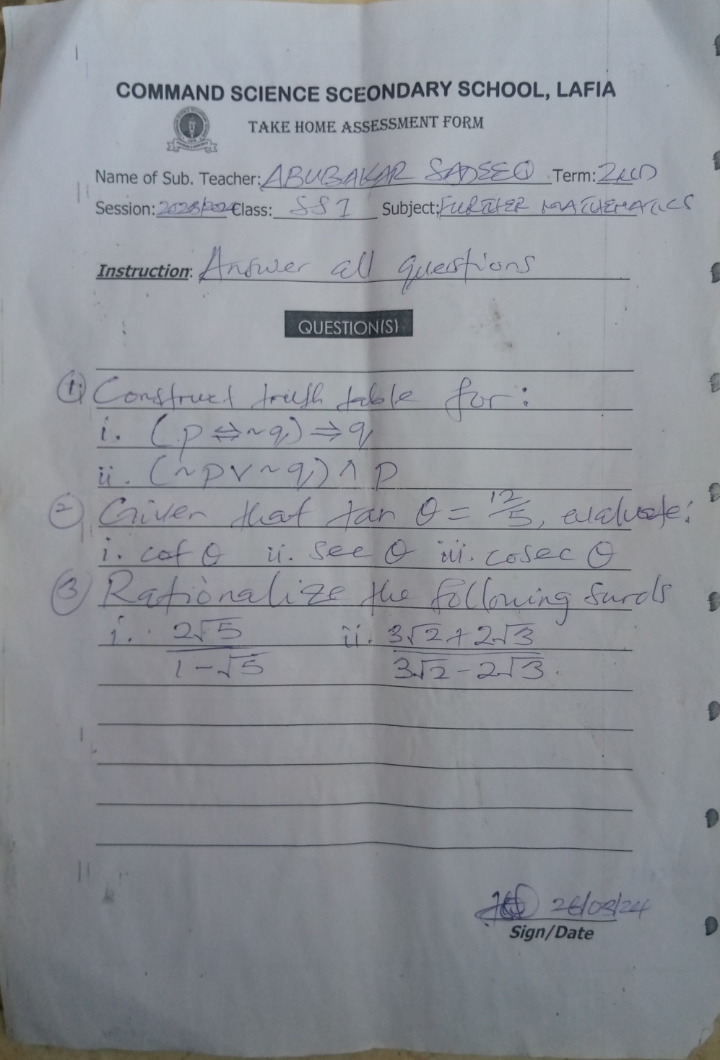 COMMAND SCIENCE SCEONDARY SCHOOL, LAFIA
TAKE HOME ASSESSMENT FORM
Name of Sub. Teacher: ABUBAKAR SADEEQ Term: 2ND
Session: 2023/2024 Class: SS1 Subject: FURTHER MATHEMATICS
Instruction: Answer all questions
QUESTION(S)
① Construct truth table for:
i. (p ⇔ ~q) ⇒ q
ii. (~p v ~q) ∧ p
② Given that tan θ = 12/5, evaluate:
i. cot θ ii. sec θ iii. cosec θ
③ Rationalize the following surds
i. 2√5 / 1-√5 ii. 3√2 + 2√3 / 3√2 - 2√3.
26/03/24
Sign/Date